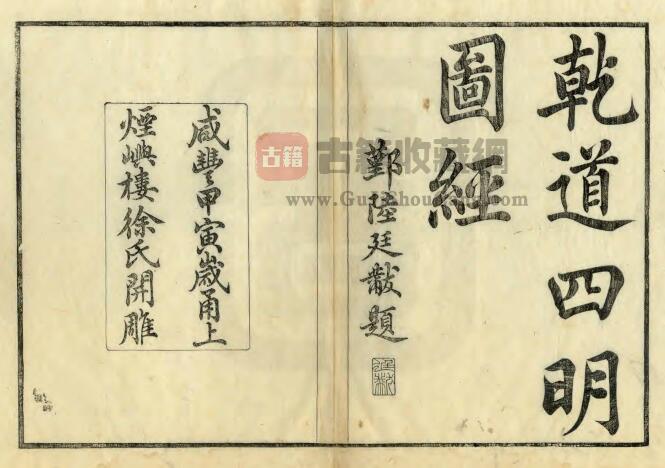 乾道四明
圖經
鄞陸廷黻題
咸豐甲寅歲甬上
煙嶼樓徐氏開雕
古籍
古籍收藏網